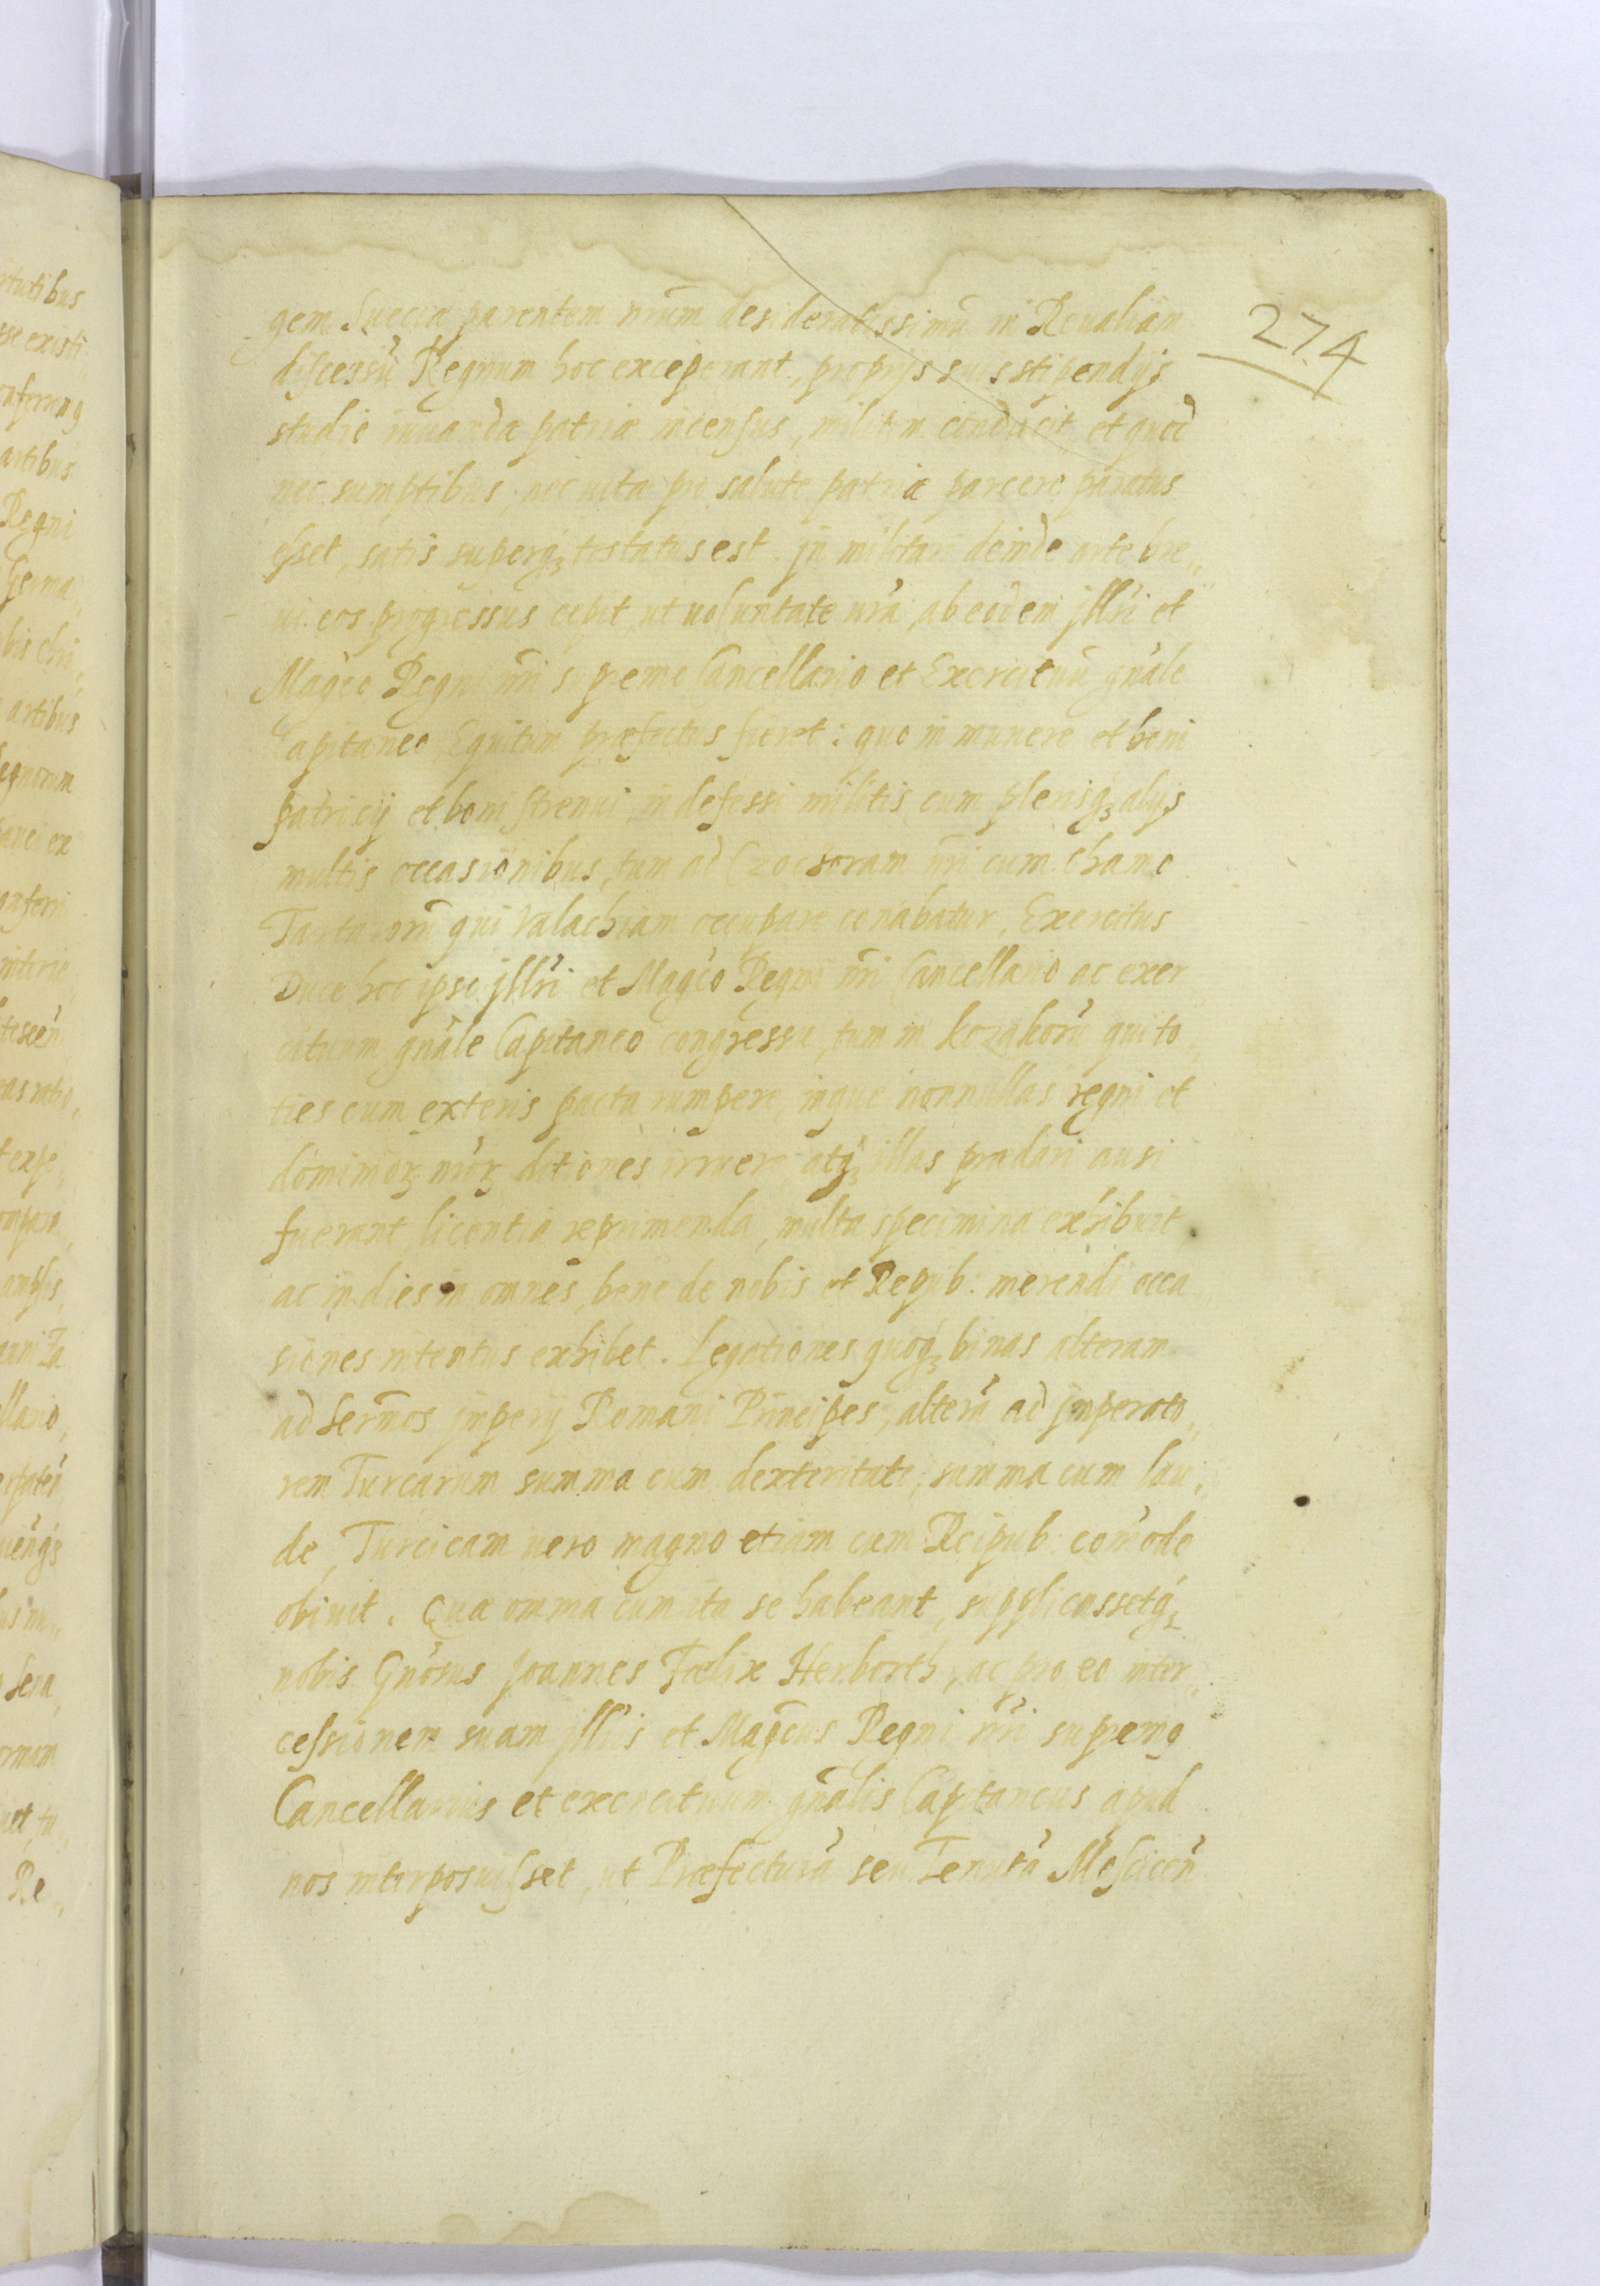 274
gem Sueciæ parentem nrūm desideratissimū in Reualiam
discessū Regnum hoc exceperant, proprijs suis stipendijs
studio iuuandæ patriæ incensus, militem conducit et quod
nec sumptibus, nec uitæ pro salute patriæ parcere paratus
esset, satis superq3 testatus est. In militari deinde arte bre„
ui eos progressus cepit, ut uoluntate nrā, ab eodem Illri et
Magco Regni nri supremo Cancellario et Exercituū gnāle
Capitaneo Equitum præfectus fieret: quo in munere et boni
patricij et boni strenui indefessi militis cum plerisq3 alijs
multis occasionibus, tum ad Czoczoram nri cum Chamo
Tartarorū qui Valachiam occupare conabatur, Exercitus
Duce hoc ipso Illri et Magco Regni nri Cancellario ac exer
cituum gnāle Capitaneo congressu, tum in kozakorū qui to
ties cum exteris pacta rumpere, inque nonnullas regni et
dominiorz nrorz ditiones irruere atq3 illas prædari ausi
fuerant licentia reprimenda, multa specimina exhibuit,
ac in dies in omnes, bene de nobis et Repub: merendi occa
siones intentus exhibet. Legationes quoq3 binas alteram
ad Sermos Imperij Romani Principes, alterā ad Imperato„
rem Turcarum summa cum dexteritate, summa cum lau„
de, Turcicam uero magno etiam cum Reipub. comodo
obiuit. Quæ omnia cum ita se habeant, supplicassetq3
nobis Gnosus Joannes Fœlix Herborth, ac pro eo inter„
cessionem suam Illris et Magcus Regni nri supremo
Cancellarius et exercituum gnālis Capitaneus apud
nos interposuisset, ut Præfecturā seu Tenutā Mościcen̄